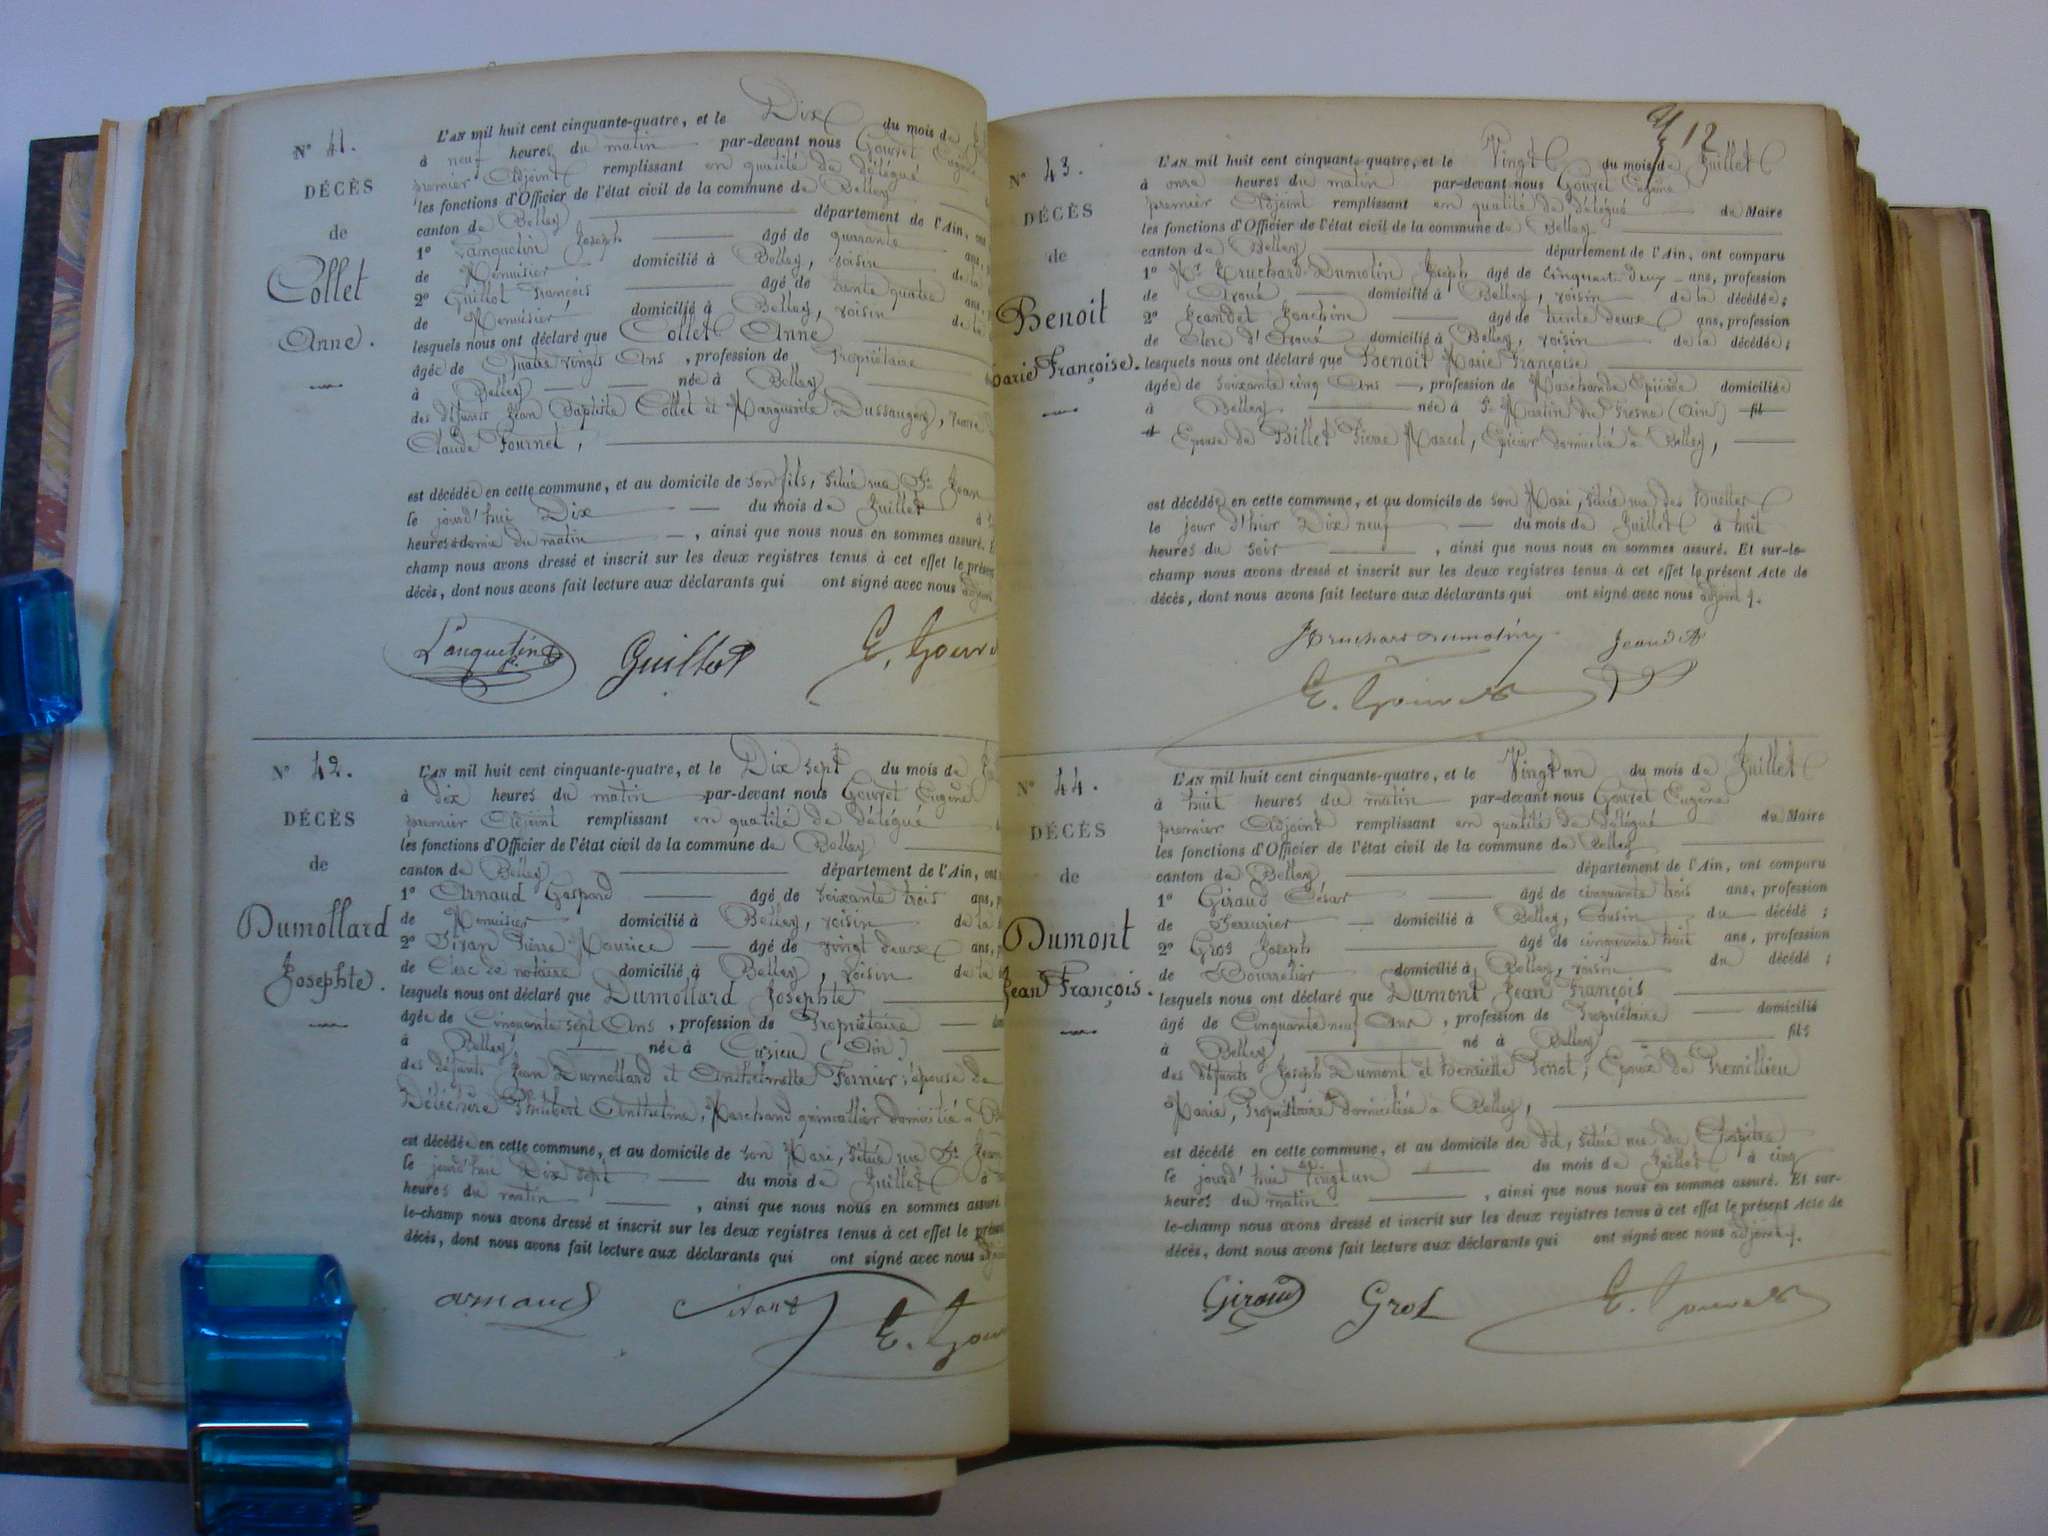 N° 41.
DÉCÈS
de
Collet
Anne.
L'AN mil huit cent cinquante-quatre, et le Dix du mois de
à neuf heures du matin par-devant nous Gouvet Eugène
premier Adjoint remplissant en qualité de délégué
les fonctions d'Officier de l'état civil de la commune de Belley
canton de Belley département de l'Ain, ont
1° Lanquetin Joseph âgé de quarante ans,
de Menuisier domicilié à Belley, voisin de la
2° Guillot François âgé de trente quatre ans,
de Menuisier domicilié à Belley, voisin de la
lesquels nous ont déclaré que Collet Anne
âgée de Quatre vingts Ans, profession de Propriétaire
à Belley née à Belley
des défunts Jean Baptiste Collet et Marguerite Dussaugey, veuve
Claude Fournet,
est décédée en cette commune, et au domicile de son fils, situé rue St Jean
le jourd'hui Dix du mois de Juillet à
heures & demie du matin, ainsi que nous nous en sommes assuré.
champ nous avons dressé et inscrit sur les deux registres tenus à cet effet le présent
décès, dont nous avons fait lecture aux déclarants qui ont signé avec nous
Lanquetin Guillot E. Gouv
N° 42.
DÉCÈS
de
Dumollard
Josephte.
L'AN mil huit cent cinquante-quatre, et le Dix sept du mois de
à dix heures du matin par-devant nous Gouvet Eugène
premier Adjoint remplissant en qualité de délégué
les fonctions d'Officier de l'état civil de la commune de Belley
canton de Belley département de l'Ain, ont
1° Arnaud Gaspard âgé de soixante trois ans,
de Menuisier domicilié à Belley, voisin de la
2° Sivan Pierre Maurice âgé de vingt deux ans,
de Clerc de notaire domicilié à Belley, voisin de la
lesquels nous ont déclaré que Dumollard Josephte
âgée de Cinquante sept Ans, profession de Propriétaire
à Belley née à Cuzieu (Ain)
des défunts Jean Dumollard et Anthelmette Fornier; épouse de
Philibert Anthelme, Marchand domicilié à
est décédée en cette commune, et au domicile de son Mari, situé rue St Jean
le jourd'hui Dix sept du mois de Juillet à
heures du matin, ainsi que nous nous en sommes assuré
le-champ nous avons dressé et inscrit sur les deux registres tenus à cet effet le présent
décès, dont nous avons fait lecture aux déclarants qui ont signé avec nous
arnaud Sivan E. Gou
12
N° 43.
DÉCÈS
de
Benoit
Marie Françoise.
L'AN mil huit cent cinquante-quatre, et le Vingt du mois de Juillet
à onze heures du matin par-devant nous Gouvet Eugène
premier Adjoint remplissant en qualité de délégué du Maire
les fonctions d'Officier de l'état civil de la commune de Belley
canton de Belley département de l'Ain, ont comparu
1° Mr Truchard-Dumolin Joseph âgé de Cinquante deux ans, profession
de Avoué domicilié à Belley, voisin de la décédée;
2° Jeandet Joachim âgé de trente deux ans, profession
de Clerc d'Avoué domicilié à Belley, voisin de la décédée;
lesquels nous ont déclaré que Benoit Marie Françoise
âgée de soixante cinq Ans, profession de Marchande Epicière domiciliée
à Belley née à St Martin du Fresne (Ain) fil
Epouse de Billet Pierre Marcel, Epicier domicilié à Belley,
est décédée en cette commune, et au domicile de son Mari, situé rue des
le jour d'hier Dix neuf du mois de Juillet à huit
heures du soir, ainsi que nous nous en sommes assuré. Et sur-le-
champ nous avons dressé et inscrit sur les deux registres tenus à cet effet le présent Acte de
décès, dont nous avons fait lecture aux déclarants qui ont signé avec nous adjoint.
Truchard Dumolin Jeandet
E. Gouvet
N° 44.
DÉCÈS
de
Dumont
Jean François.
L'AN mil huit cent cinquante-quatre, et le Vingt un du mois de Juillet
à huit heures du matin par-devant nous Gouvet Eugène
premier Adjoint remplissant en qualité de délégué du Maire
les fonctions d'Officier de l'état civil de la commune de Belley
canton de Belley département de l'Ain, ont comparu
1° Giraud César âgé de cinquante trois ans, profession
de Serrurier domicilié à Belley, Cousin du décédé;
2° Gros Joseph âgé de cinquante huit ans, profession
de Bourrelier domicilié à Belley, voisin du décédé;
lesquels nous ont déclaré que Dumont Jean François
âgé de Cinquante neuf Ans, profession de Propriétaire domicilié
à Belley né à Belley fils
des défunts Joseph Dumont et Henriette Genot; Epoux de Premillieu
Marie, Propriétaire domiciliée à Belley,
est décédé en cette commune, et au domicile du dit, situé rue du Chapitre
le jourd'hui vingt un du mois de Juillet à cinq
heures du matin, ainsi que nous nous en sommes assuré. Et sur-
le-champ nous avons dressé et inscrit sur les deux registres tenus à cet effet le présent Acte de
décès, dont nous avons fait lecture aux déclarants qui ont signé avec nous adjoint.
Giraud Gros E. Gouvet